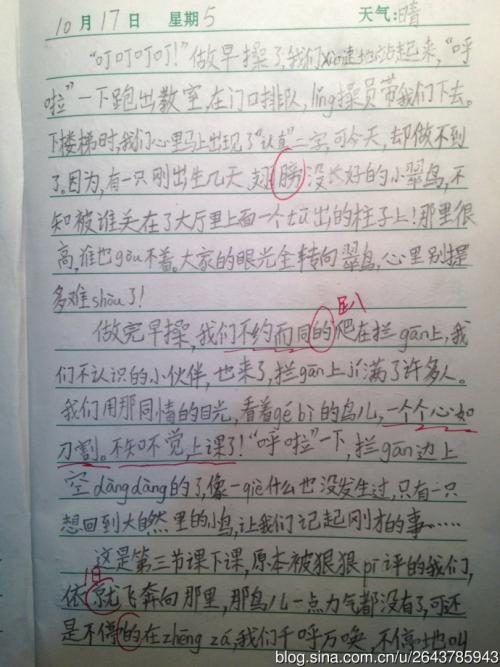 10月17日 星期5 天气:晴
“叮叮叮叮!”做早操了,我们xùn速地站起来,“呼
啦”一下跑出教室,在门口排队,lǐng操员带我们下去。
下楼梯时,我们心里马上出现了“认真”二字,可今天,却做不到
了。因为,有一只刚出生几天,翅膀没长好的小翠鸟,不
知被谁关在了大厅里上面一个tū出的柱子上!那里很
高,谁也gòu不着。大家的眼光全转向翠鸟,心里别提
多难shòu了!
趴
做完早操,我们不约而同的爬在拦gān上,我
们不认识的小伙伴,也来了,拦gān上jǐ满了许多人。
我们用那同情的目光,看着gé bì的鸟儿,一个个心如
刀割。不知不觉上课了!“呼啦”一下,拦gān边上
空dàngdàng的了,像一qiè什么也没发生过,只有一只
想回到大自然里的小鸟,让我们记起刚才的事……
这是第三节课下课,原本被狠狠pī评的我们,
旧
依就飞奔向那里,那鸟儿一点力气都没有了,可还
是不停的在zhēng zá,我们千呼万唤,不停地叫
blog.sina.com.cn/u/2643785943